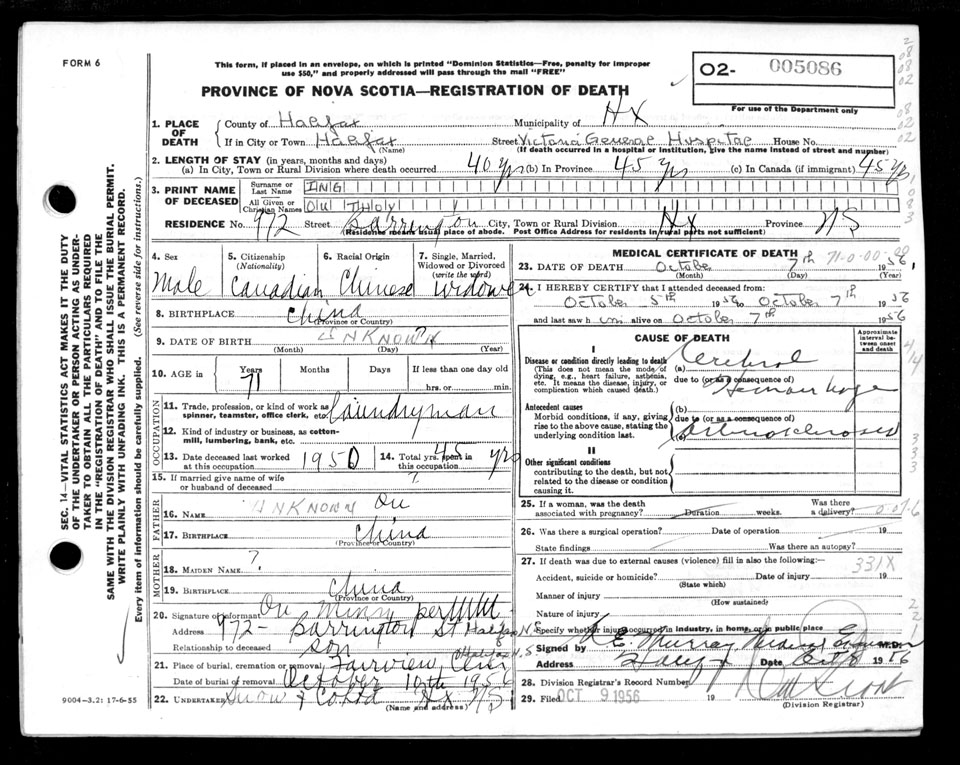 FORM 6
This form, if placed in an envelope, on which is printed "Dominion Statistics—Free, penalty for improper
use $50," and properly addressed will pass through the mail "FREE"
PROVINCE OF NOVA SCOTIA—REGISTRATION OF DEATH
O2- 005086
For use of the Department only
1. PLACE OF DEATH
County of Halifax Municipality of Hx
If in City or Town Halifax Street Victoria General Hospital House No.
(Name) (If death occurred in a hospital or institution, give the name instead of street and number)
2. LENGTH OF STAY (in years, months and days)
(a) In City, Town or Rural Division where death occurred 40 yrs (b) In Province 45 yrs (c) In Canada (if immigrant) 45 yrs
3. PRINT NAME OF DECEASED
Surname or Last Name ING
All Given or Christian Names OU THOY
RESIDENCE No. 972 Street Barrington City, Town or Rural Division Hx Province NS
(Residence means usual place of abode. Post Office Address for residents in rural parts not sufficient)
4. Sex Male
5. Citizenship (Nationality) Canadian
6. Racial Origin Chinese
7. Single, Married, Widowed or Divorced (write the word) Widower
8. BIRTHPLACE China
(Province or Country)
9. DATE OF BIRTH UNKNOWN
(Month) (Day) (Year)
10. AGE in Years 71 Months Days If less than one day old
hrs. or min.
OCCUPATION
11. Trade, profession, or kind of work as spinner, teamster, office clerk, etc. Laundryman
12. Kind of industry or business, as cotton-mill, lumbering, bank, etc.
13. Date deceased last worked at this occupation 1950
14. Total yrs. spent in this occupation 45 yrs
15. If married give name of wife or husband of deceased ?
FATHER
16. NAME UNKNOWN Ou
17. BIRTHPLACE China
(Province or Country)
MOTHER
18. MAIDEN NAME ?
19. BIRTHPLACE China
(Province or Country)
20. Signature of informant Ou Minny per
Address 972- Barrington St Halifax N.S
Relationship to deceased son
21. Place of burial, cremation or removal Fairview Halifax N.S
Date of burial or removal October 10th 1956
22. UNDERTAKER Snow & Co Ltd Hx NS
(Name and address)
MEDICAL CERTIFICATE OF DEATH
23. DATE OF DEATH October 7th 1956
71-0-00
(Month) (Day) (Year)
24. I HEREBY CERTIFY that I attended deceased from:
October 5th 1956 to October 7th 1956
and last saw him alive on October 7th 1956
CAUSE OF DEATH
Approximate interval between onset and death
I
Disease or condition directly leading to death
(This does not mean the mode of dying, e.g., heart failure, asthenia, etc. It means the disease, injury, or complication which caused death.)
(a) Cerebral
due to (or as a consequence of) Hemorrhage
Antecedent causes
Morbid conditions, if any, giving rise to the above cause, stating the underlying condition last.
(b)
due to (or as a consequence of)
(c) Arteriosclerosis
II
Other significant conditions
contributing to the death, but not related to the disease or condition causing it.
25. If a woman, was the death associated with pregnancy? Duration weeks. Was there a delivery?
26. Was there a surgical operation? Date of operation 19
State findings Was there an autopsy?
27. If death was due to external causes (violence) fill in also the following:—
331X
Accident, suicide or homicide? Date of injury 19
(State which)
Manner of injury
(How sustained)
Nature of injury
Specify whether injury occurred in industry, in home, or in public place
Signed by E. Murray Medical Examiner M.D.
Address Halifax Date Oct 8 1956
28. Division Registrar's Record Number
29. Filed OCT 9 1956
(Division Registrar)
9004-3.2: 17-6-55
SEC. 14—VITAL STATISTICS ACT MAKES IT THE DUTY
OF THE UNDERTAKER OR PERSON ACTING AS UNDER-
TAKER TO OBTAIN ALL THE PARTICULARS REQUIRED
IN THE "REGISTRATION OF DEATH" AND TO FILE THE
SAME WITH THE DIVISION REGISTRAR WHO SHALL ISSUE THE BURIAL PERMIT.
WRITE PLAINLY WITH UNFADING INK. THIS IS A PERMANENT RECORD.
Every item of information should be carefully supplied. (See reverse side for instructions.)